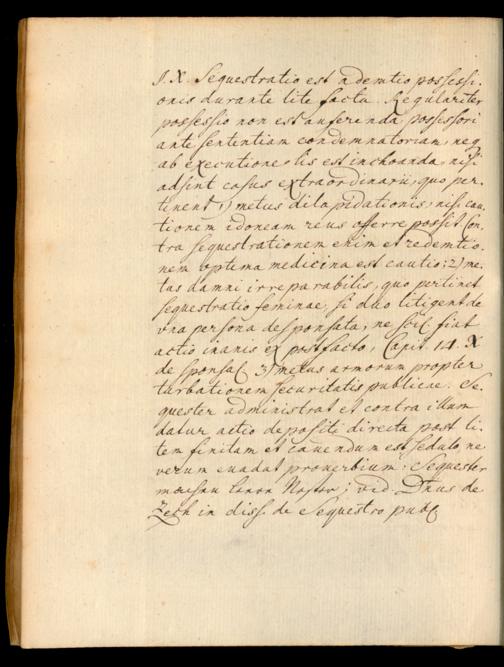 §. X. Sequestratio est ademtio possessi-
onis durante lite facta. Regulariter
possessio non est auferenda possessori
ante sententiam condemnatoriam, neq
ab executione lis est inchoanda, nisi
adsint casus extraordinarii, quo per-
tinent 1) metus dilapidationis, nisi cau-
tionem idoneam reus offerre possit Con-
tra sequestrationem enim et redemtio-
nem optima medicina est cautio; 2) me-
tus damni irreparabilis, quo pertinet
sequestratio feminae, si duo litigent de
una persona desponsata, ne scil fiat
actio inanis ex postfacto, Capit. 14. X
de sponsal 3) metus armorum propter
turbationem securitatis publicae. Se-
quester administrat et contra illum
datur actio depositi directa post li-
tem finitam et cavendum est sedulo, ne
verum evadat proverbium: Sequester
vid. Dnus de
Zech in diss. de Sequestro publ